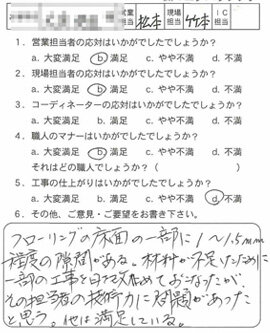 営業担当 松本 現場担当 竹本 IC担当
1. 営業担当者の応対はいかがでしたでしょうか?
a. 大変満足 b 満足 c. やや不満 d. 不満
2. 現場担当者の応対はいかがでしたでしょうか?
a. 大変満足 b 満足 c. やや不満 d. 不満
3. コーディネーターの応対はいかがでしたでしょうか?
a. 大変満足 b. 満足 c. やや不満 d. 不満
4. 職人のマナーはいかがでしたでしょうか?
a. 大変満足 b 満足 c. やや不満 d. 不満
それはどの職人でしょうか?( )
5. 工事の仕上がりはいかがでしたでしょうか?
a. 大変満足 b. 満足 c. やや不満 d. 不満
6. その他、ご意見・ご要望をお書き下さい。
フローリングの床面の一部に1~1.5mm
程度の隙間がある。材料が不足したために
一部の工事を日を改めておこなったが
その担当者の技術力に問題があった
と思う。他は満足している。